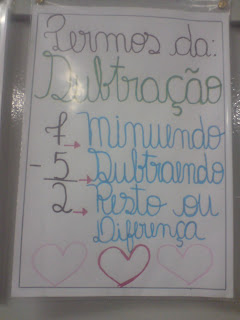 Termos da:
Subtração
7 → Minuendo
- 5 → Subtraendo
2 → Resto ou
Diferença